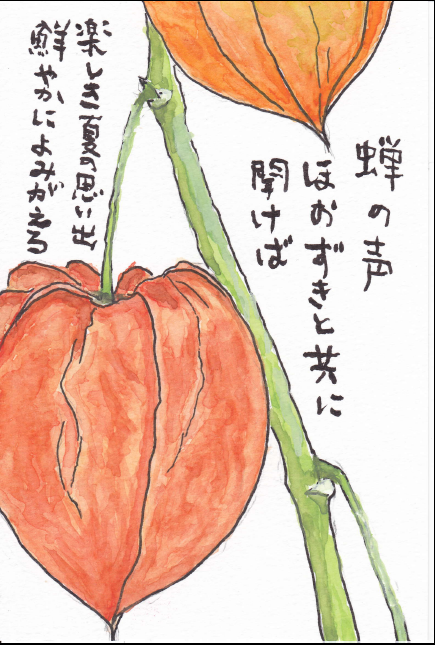 蝉の声
ほおずきと共に
聞けば
楽しき夏の思い出
鮮やかによみがえる